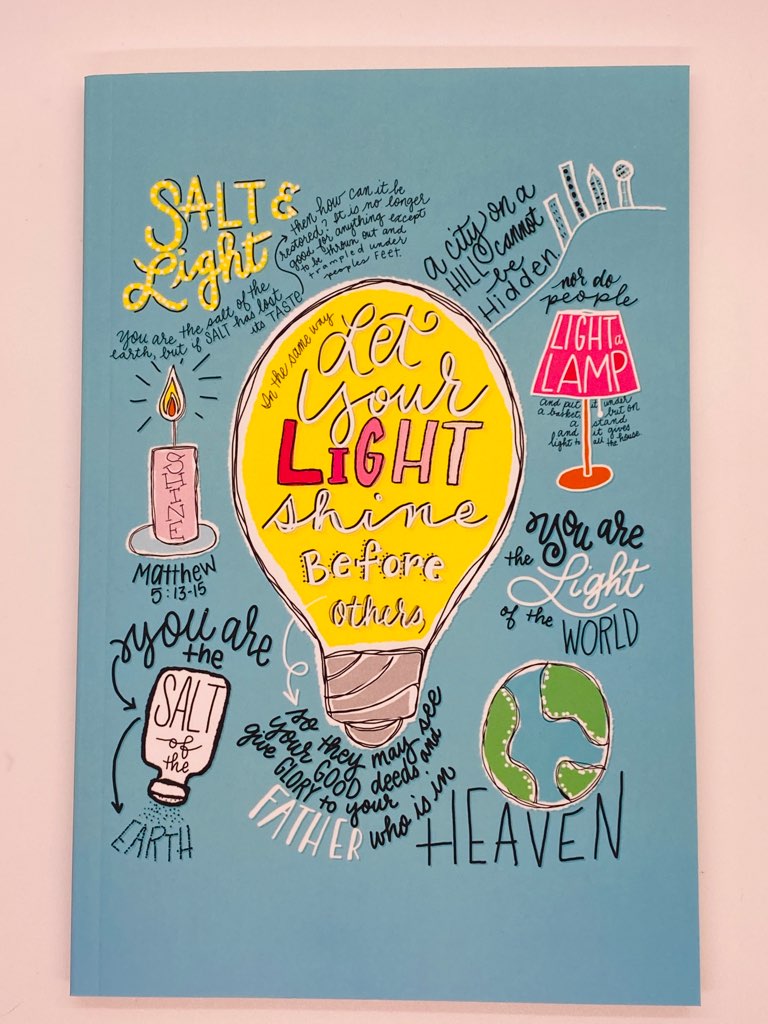 SALT &
Light
You are the salt of the
earth, but if SALT has lost
its TASTE
then how can it be
restored? It is no longer
good for anything except
to be thrown out and
trampled under
peoples feet.
a city on a
HILL cannot
be
Hidden.
nor do
people
LIGHT a
LAMP
and put it under
a basket, but on
a stand
and it gives
light to all the house.
In the same way
Let
your
LIGHT
shine
Before
others,
SHINE
Matthew
5:13-15
you are
the
SALT
of the
EARTH
you are
the Light
of the WORLD
so they may see
your GOOD deeds and
give GLORY to your
FATHER who is in
HEAVEN